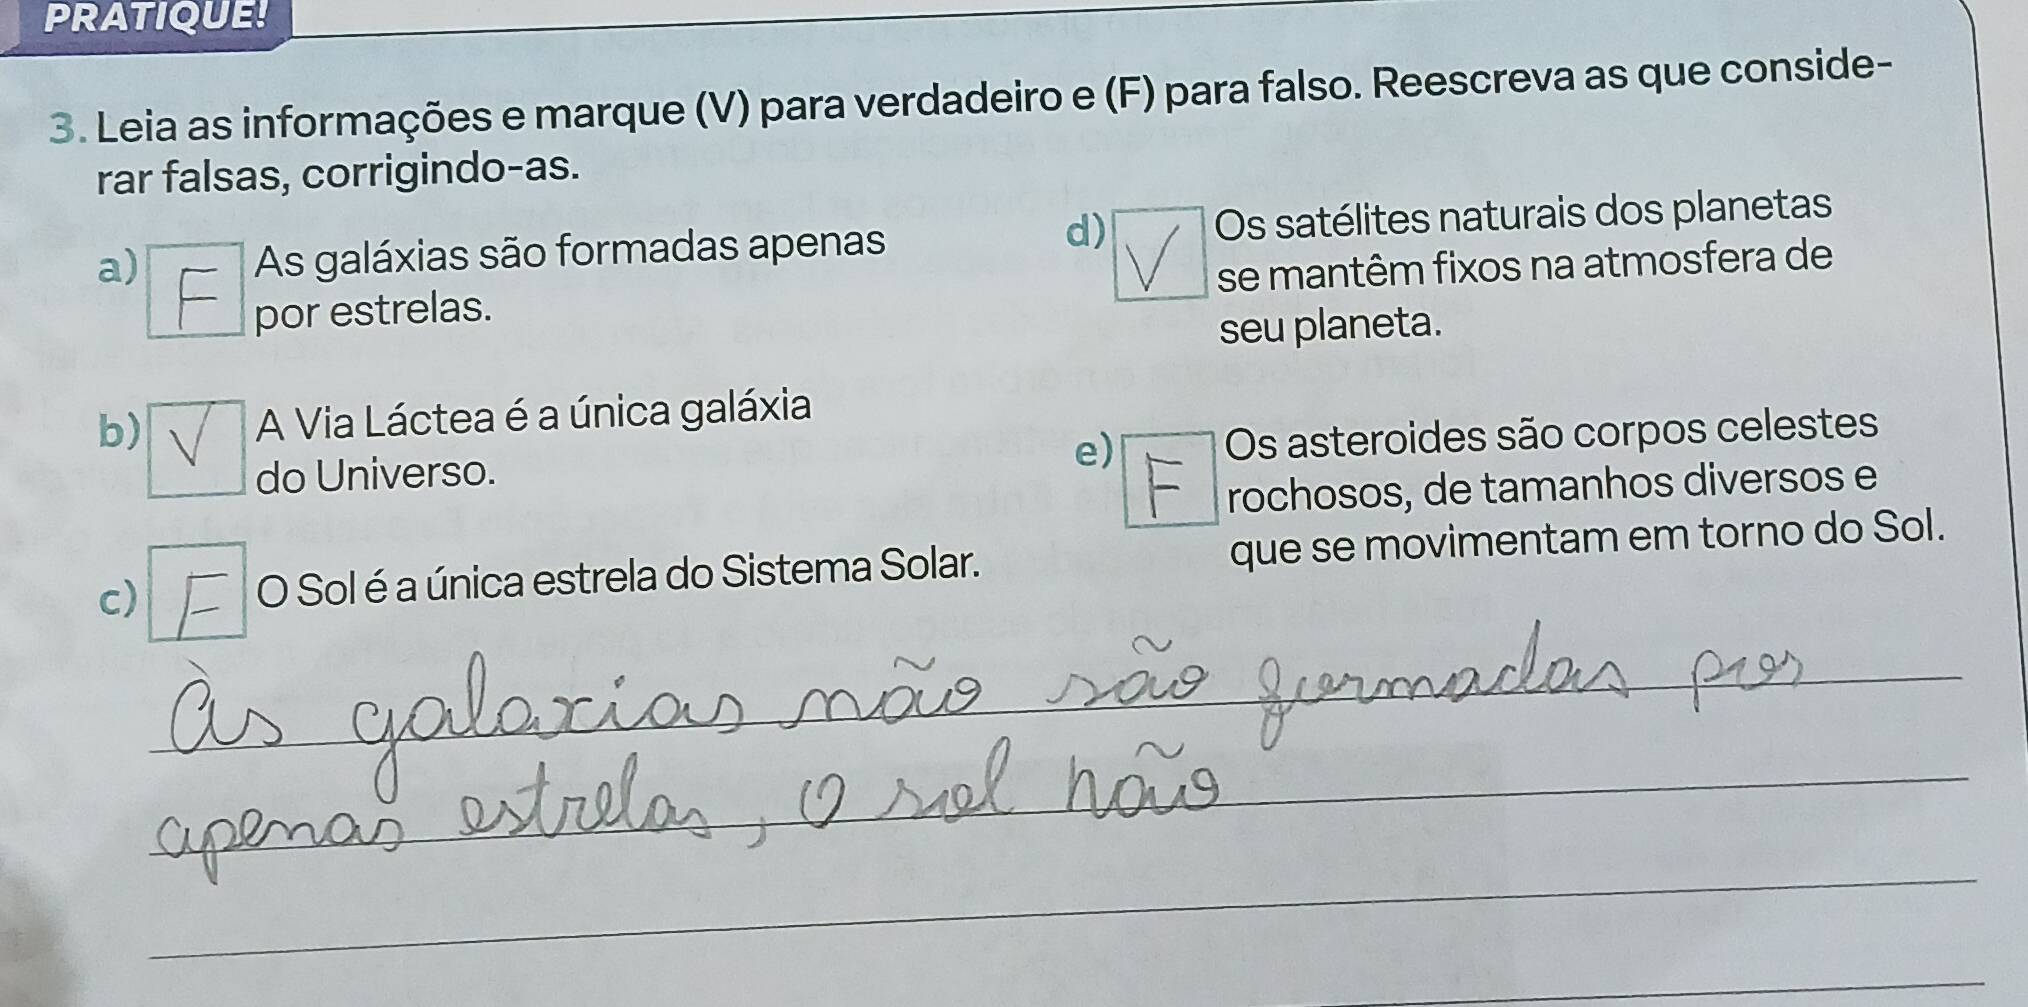 PRATIQUE!
3. Leia as informações e marque (V) para verdadeiro e (F) para falso. Reescreva as que conside-
rar falsas, corrigindo-as.
a) F As galáxias são formadas apenas
por estrelas.
b) V A Via Láctea é a única galáxia
do Universo.
c) F O Sol é a única estrela do Sistema Solar.
d) V Os satélites naturais dos planetas
se mantêm fixos na atmosfera de
seu planeta.
e) F Os asteroides são corpos celestes
rochosos, de tamanhos diversos e
que se movimentam em torno do Sol.
As galaxias não são formadas por
apenas estrelas, o sol não